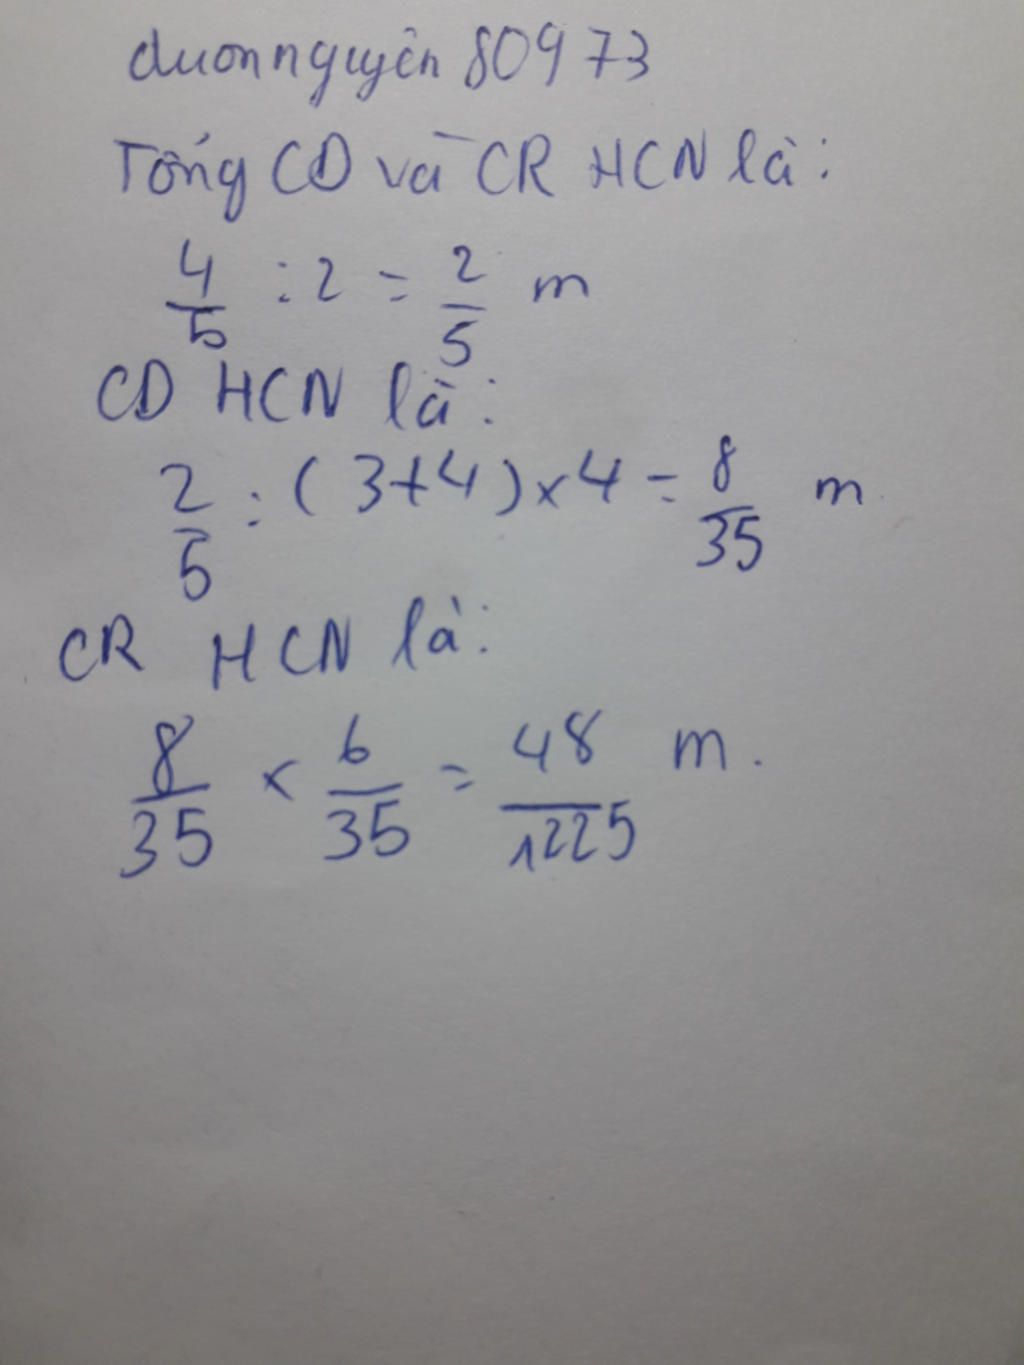 duonnguyên 80973
Tổng CD và CR HCN là:
4/5 : 2 = 2/5 m
CD HCN là:
2/5 : (3+4) × 4 = 8/35 m
CR HCN là:
8/35 × 6/35 = 48/1225 m.